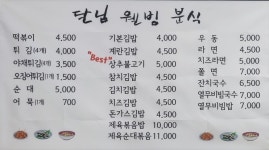 단님 웰빔 분식
떡볶이 4,500
튀 김(4개) 4,000
야채튀김(4개) 3,500
오징어튀김(1개) 1,500
순 대 5,000
어 묵(1개) 700
기본김밥 4,000
계란김밥 4,500
"Best" 상추불고기 5,000
참치김밥 4,500
김치김밥 4,500
치즈김밥 4,500
돈가스김밥 4,500
제육볶음밥 10,000
제육순대볶음 11,000
우 동 5,000
라 면 4,500
치즈라면 5,000
쫄 면 7,000
잔치국수 6,500
열무비빔국수 7,000
열무비빔밥 7,000